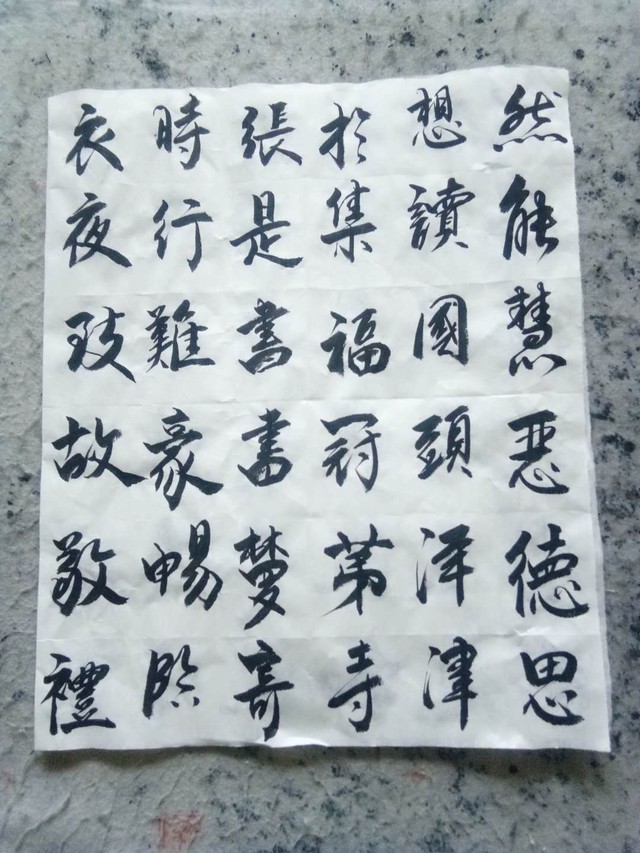 然能慧恶德思
想讀國頭洋津
於集福冠第寺
張是書書梦寄
時行難豪暢臨
衣夜致故敬禮